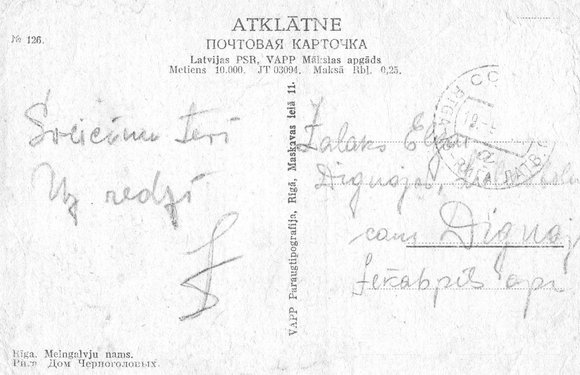 ATKLĀTNE
ПОЧТОВАЯ КАРТОЧКА
№ 126.
Latvijas PSR, VAPP Mākslas apgāds
Metiens 10.000. JT 03094. Maksā Rbļ. 0,25.
Sveicinu Tevi
Uz redzi
VAPP Paraugtipografija, Rīgā, Maskavas ielā 11.
Zalaks
Dignaja,
Dignaj
Jēkabpils apr
RĪGA
Rīga. Melngalvju nams.
Рига Дом Черноголовых.